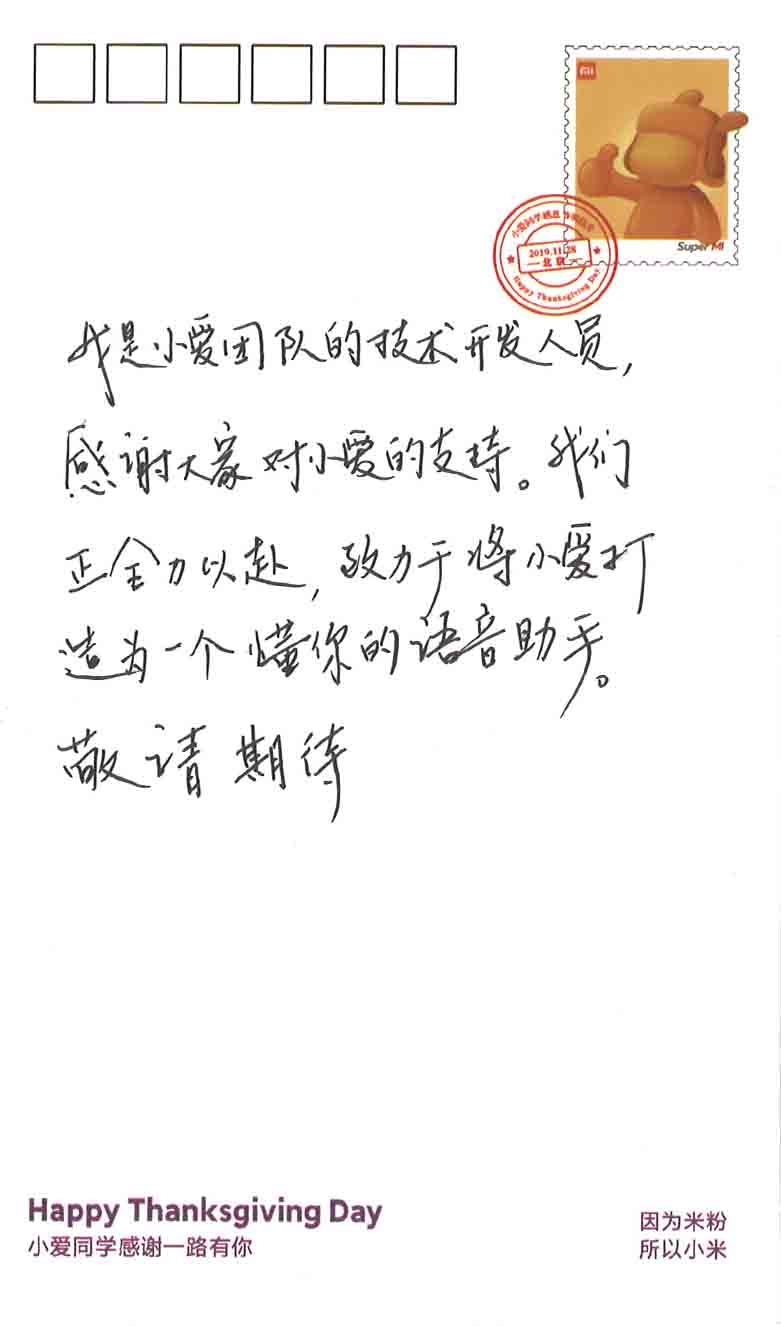 Super MI
小爱同学感恩
2019.11.28
北京
Happy Thanksgiving Day
我是小爱团队的技术开发人员,
感谢大家对小爱的支持。我们
正全力以赴,致力于将小爱打
造为一个懂你的语音助手。
敬请期待
Happy Thanksgiving Day
小爱同学感谢一路有你
因为米粉
所以小米